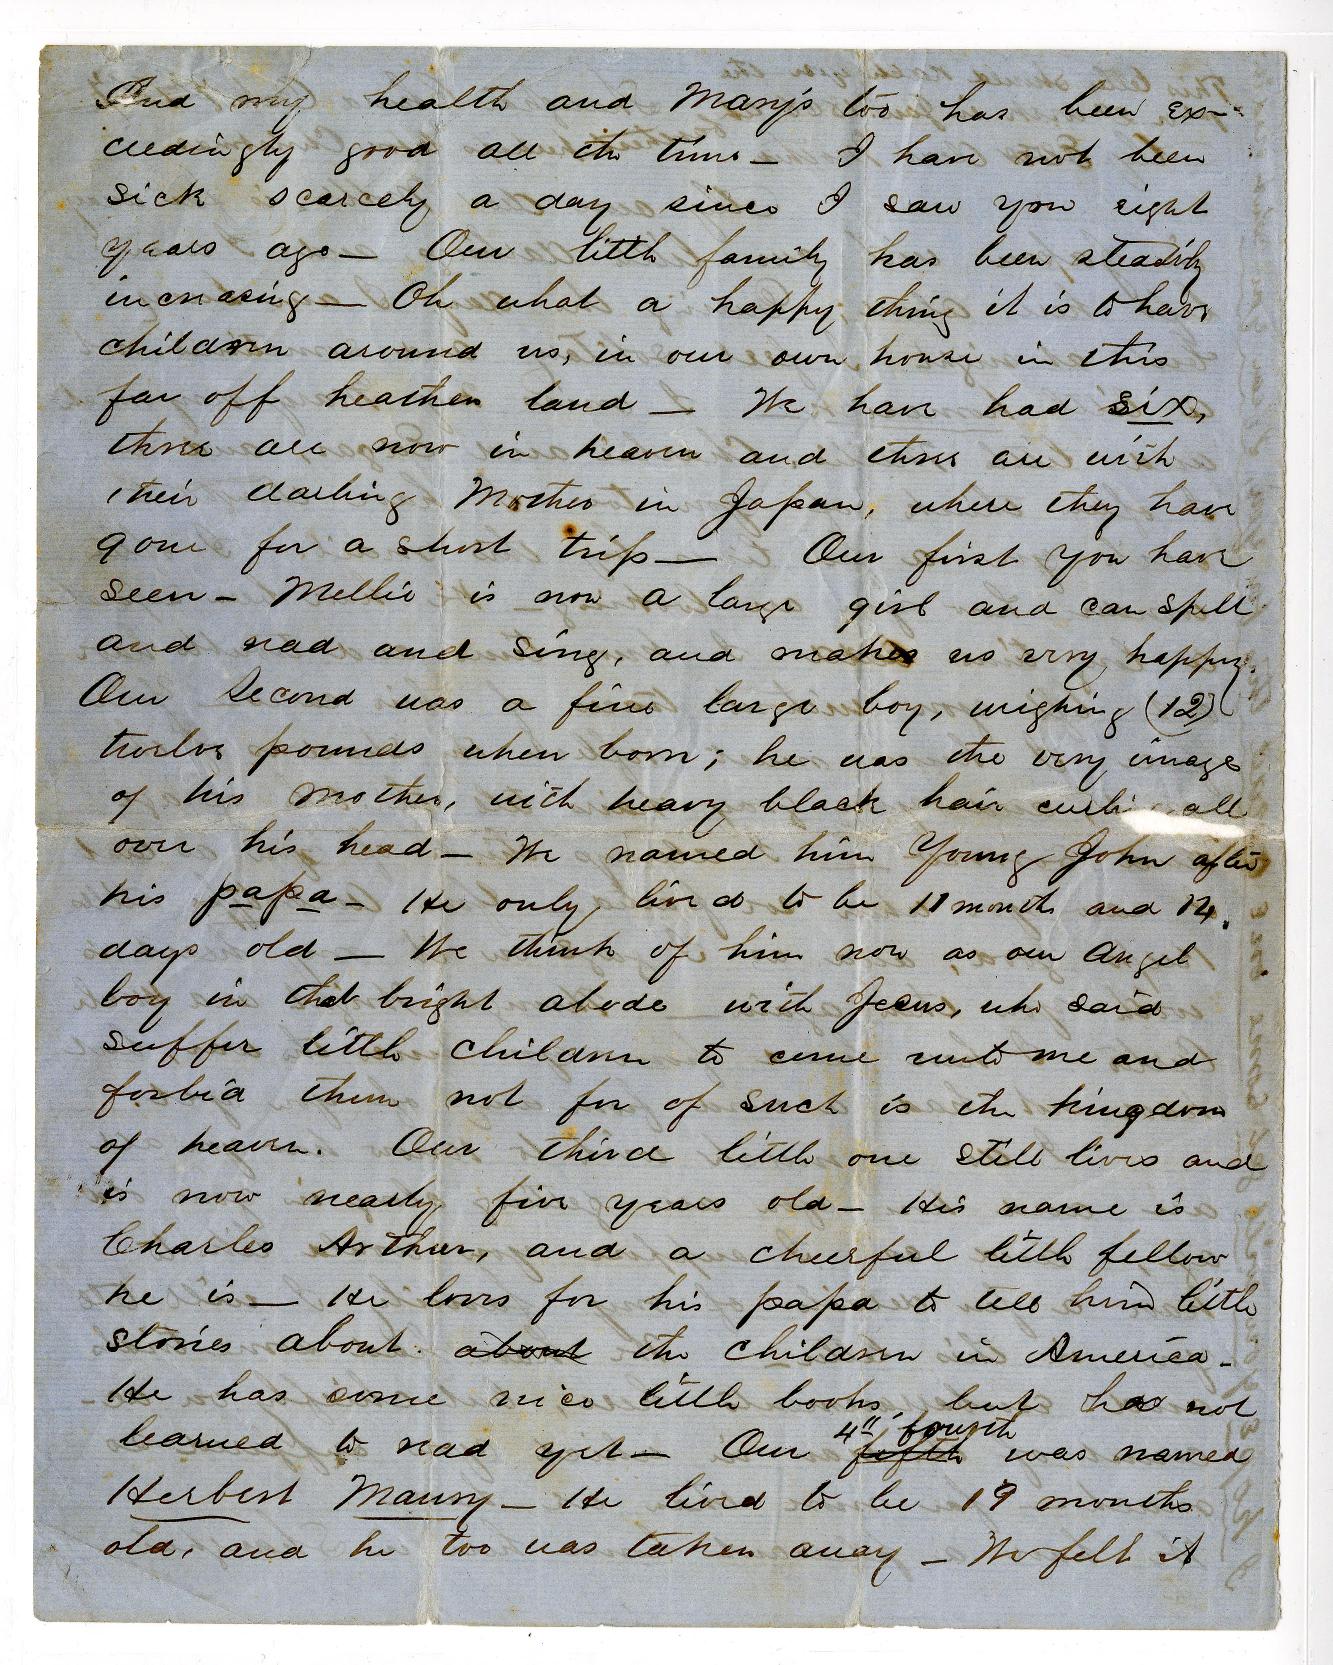 And my health and Mary's too has been ex-
ceedingly good all the time — I have not been
sick scarcely a day since I saw you eight
years ago — Our little family has been steadily
increasing — Oh what a happy thing it is to have
children around us, in our own house in this
far off heathen land — We have had six,
three are now in heaven and three are with
their darling Mother in Japan, where they have
gone for a short trip — Our first you have
seen — Mellie is now a large girl and can spell
and read and sing, and makes us very happy.
Our Second was a fine large boy, weighing (12)
twelve pounds when born; he was the very image
of his Mother, with heavy black hair all
over his head — We named him Young John after
his papa — He only lived to be 11 month and 14
days old — We think of him now as our Angel
boy in that bright abode with Jesus, who said
suffer little children to come unto me and
forbid them not for of such is the kingdom
of heaven. Our third little one still lives and
is now nearly five years old — His name is
Charles Arthur, and a cheerful little fellow
he is — He loves for his papa to tell him little
stories about about the children in America —
He has some nice little books, but has not
learned to read yet — Our fifth 4" fourth was named
Herbert Maury — He lived to be 19 months
old, and he too was taken away — We felt it